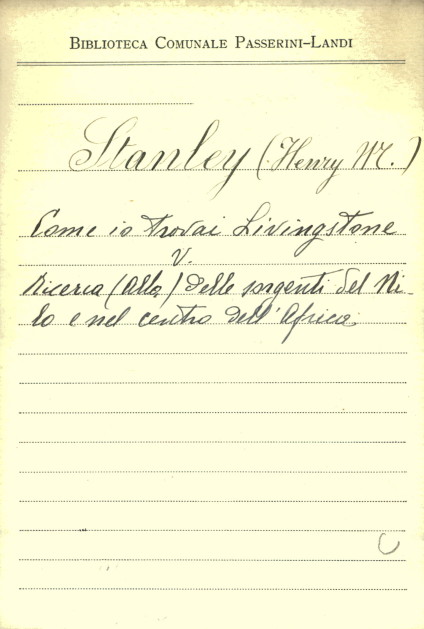 BIBLIOTECA COMUNALE PASSERINI-LANDI
Stanley (Henry M.)
Come io trovai Livingstone
V.
Ricerca (Alla) delle sorgenti del Ni-
lo e nel centro dell'Africa
C